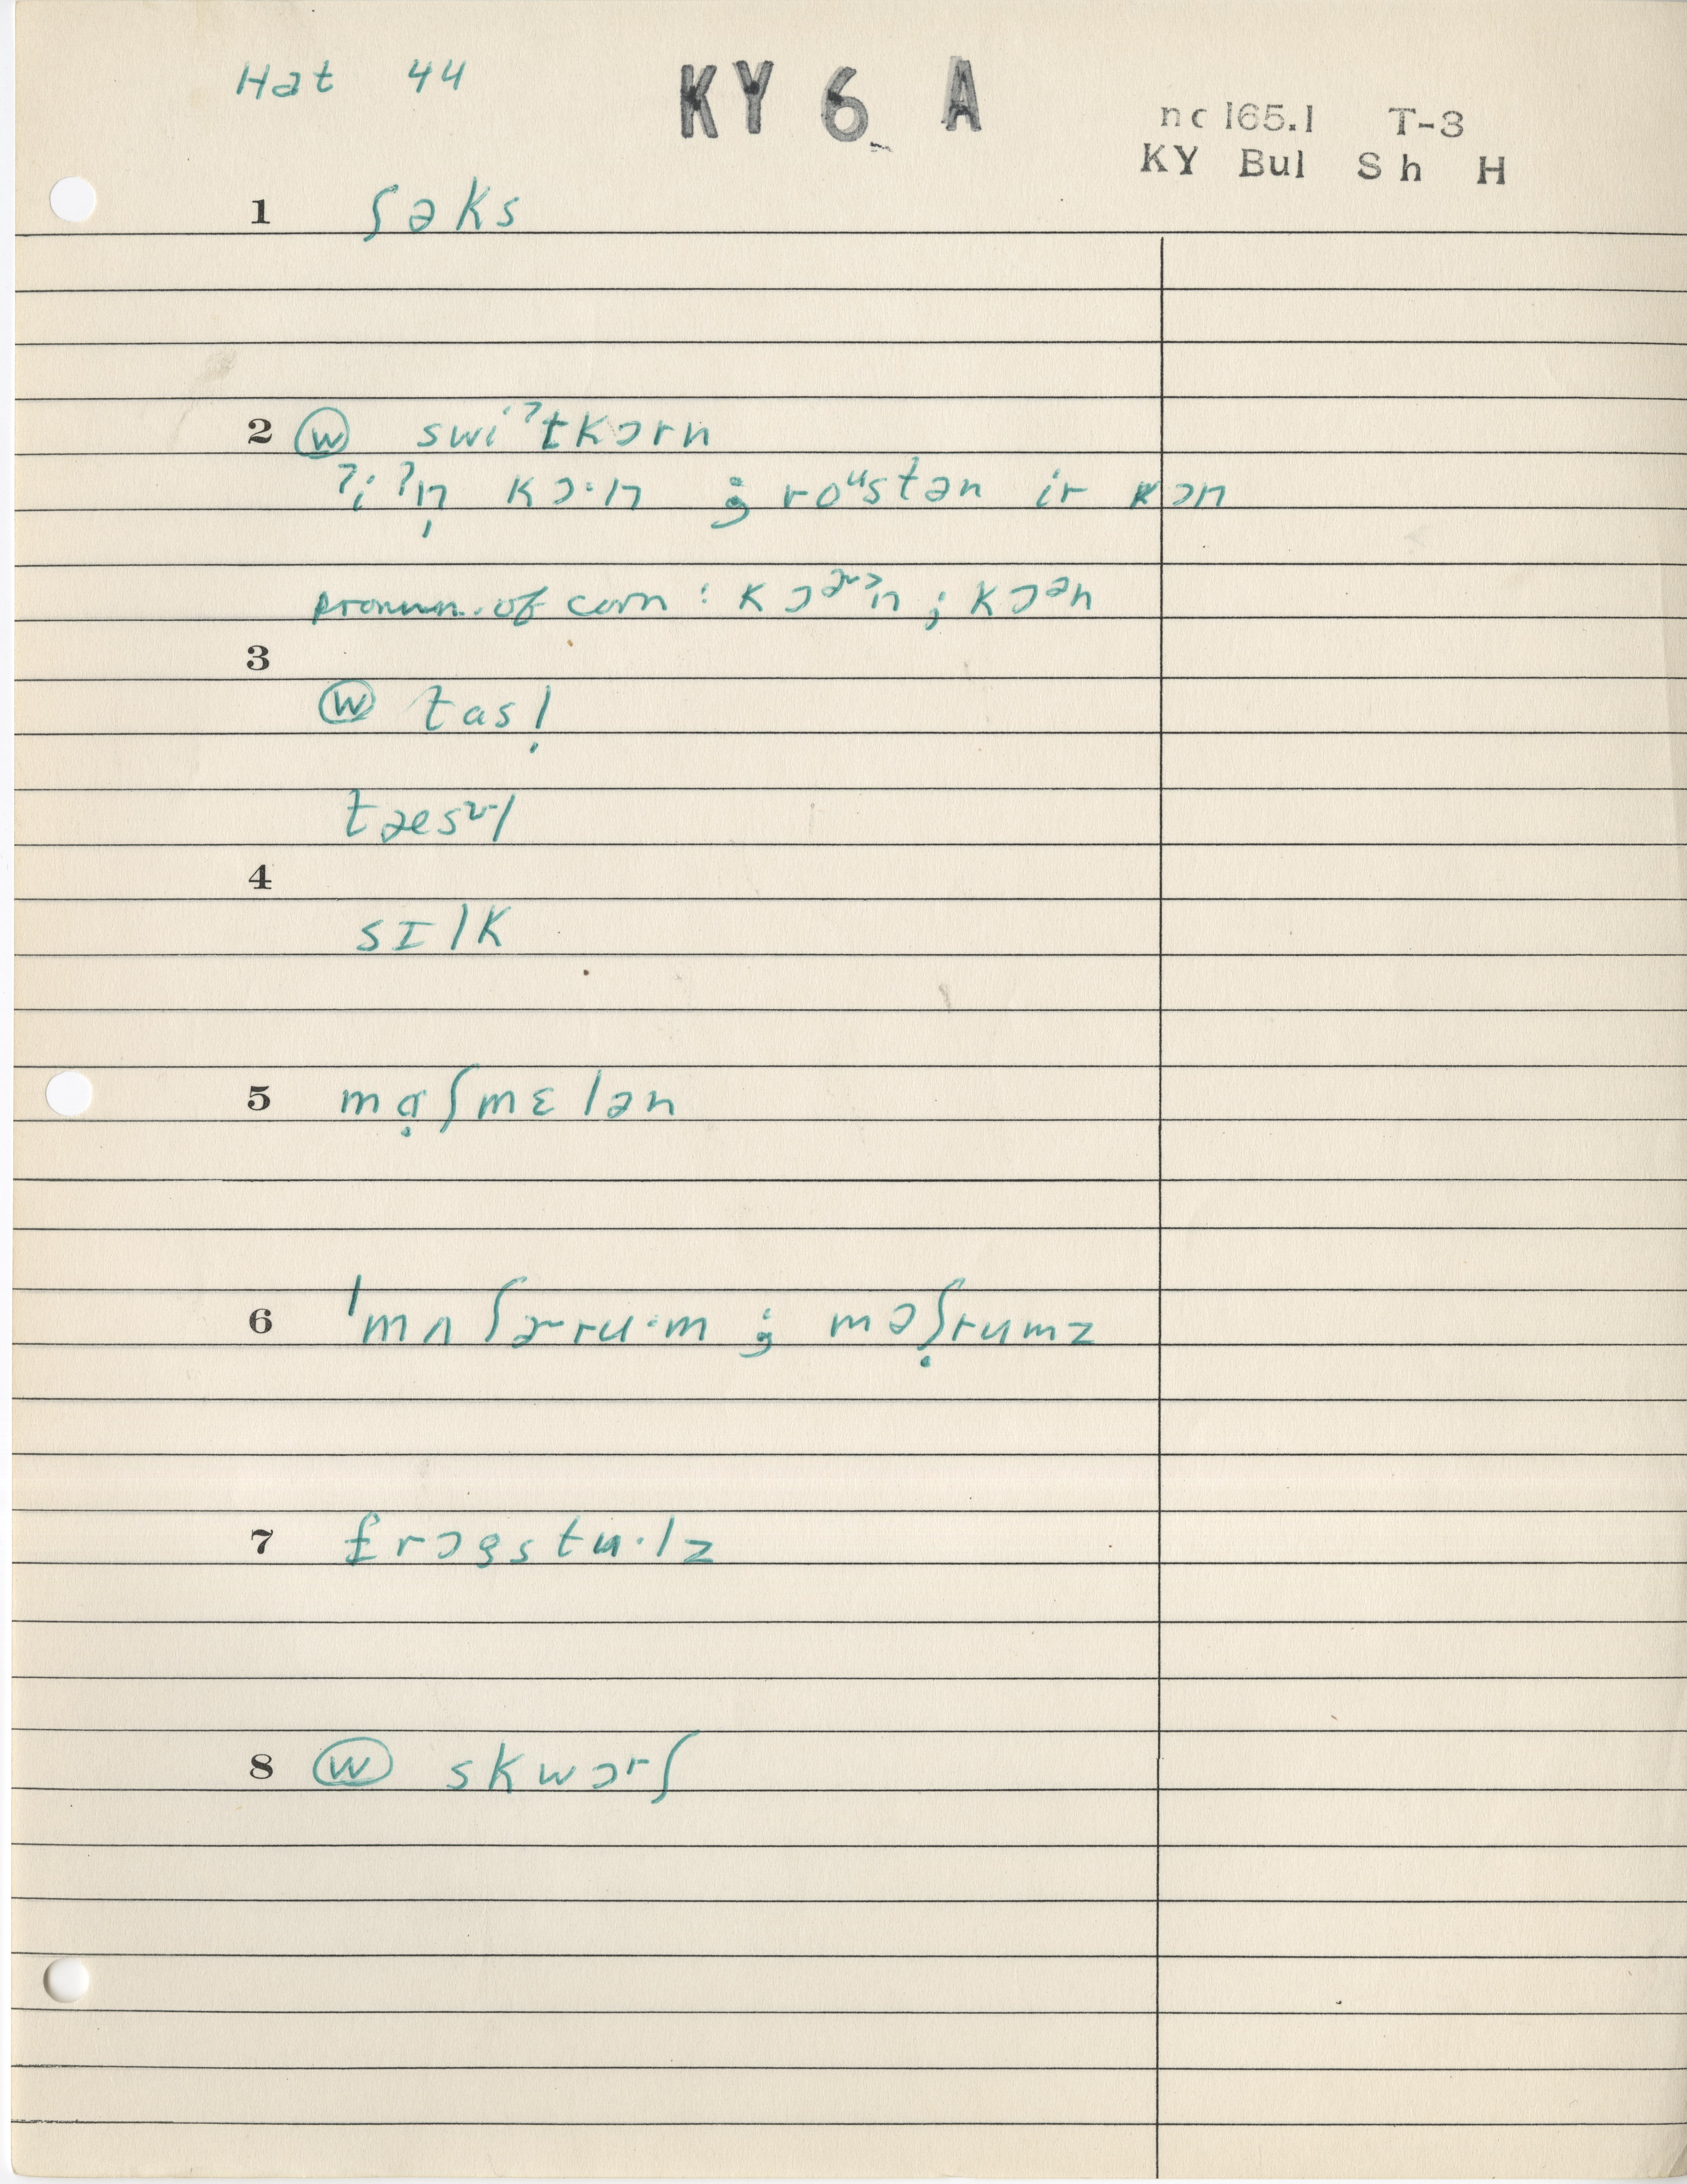 Hat 44
KY 6 A
nc 165.1 T-3
KY Bul Sh H
1 ʃəks
2 ⓦ swiˀtkɔrn
ˀiˀn̩ kɔ·n ; roᵘstən ir kɔn
pronun. of corn : kɔᵊ˞n ; kɔᵊn
3
ⓦ tasl̩
tæsɚl
4
sɪlk
5 mɑ̣ʃmɛlən
6 ˈmʌʃɚru·m ; məʃ̣rumz
7 frɔgstu·lz
8 ⓦ skwɔrʃ